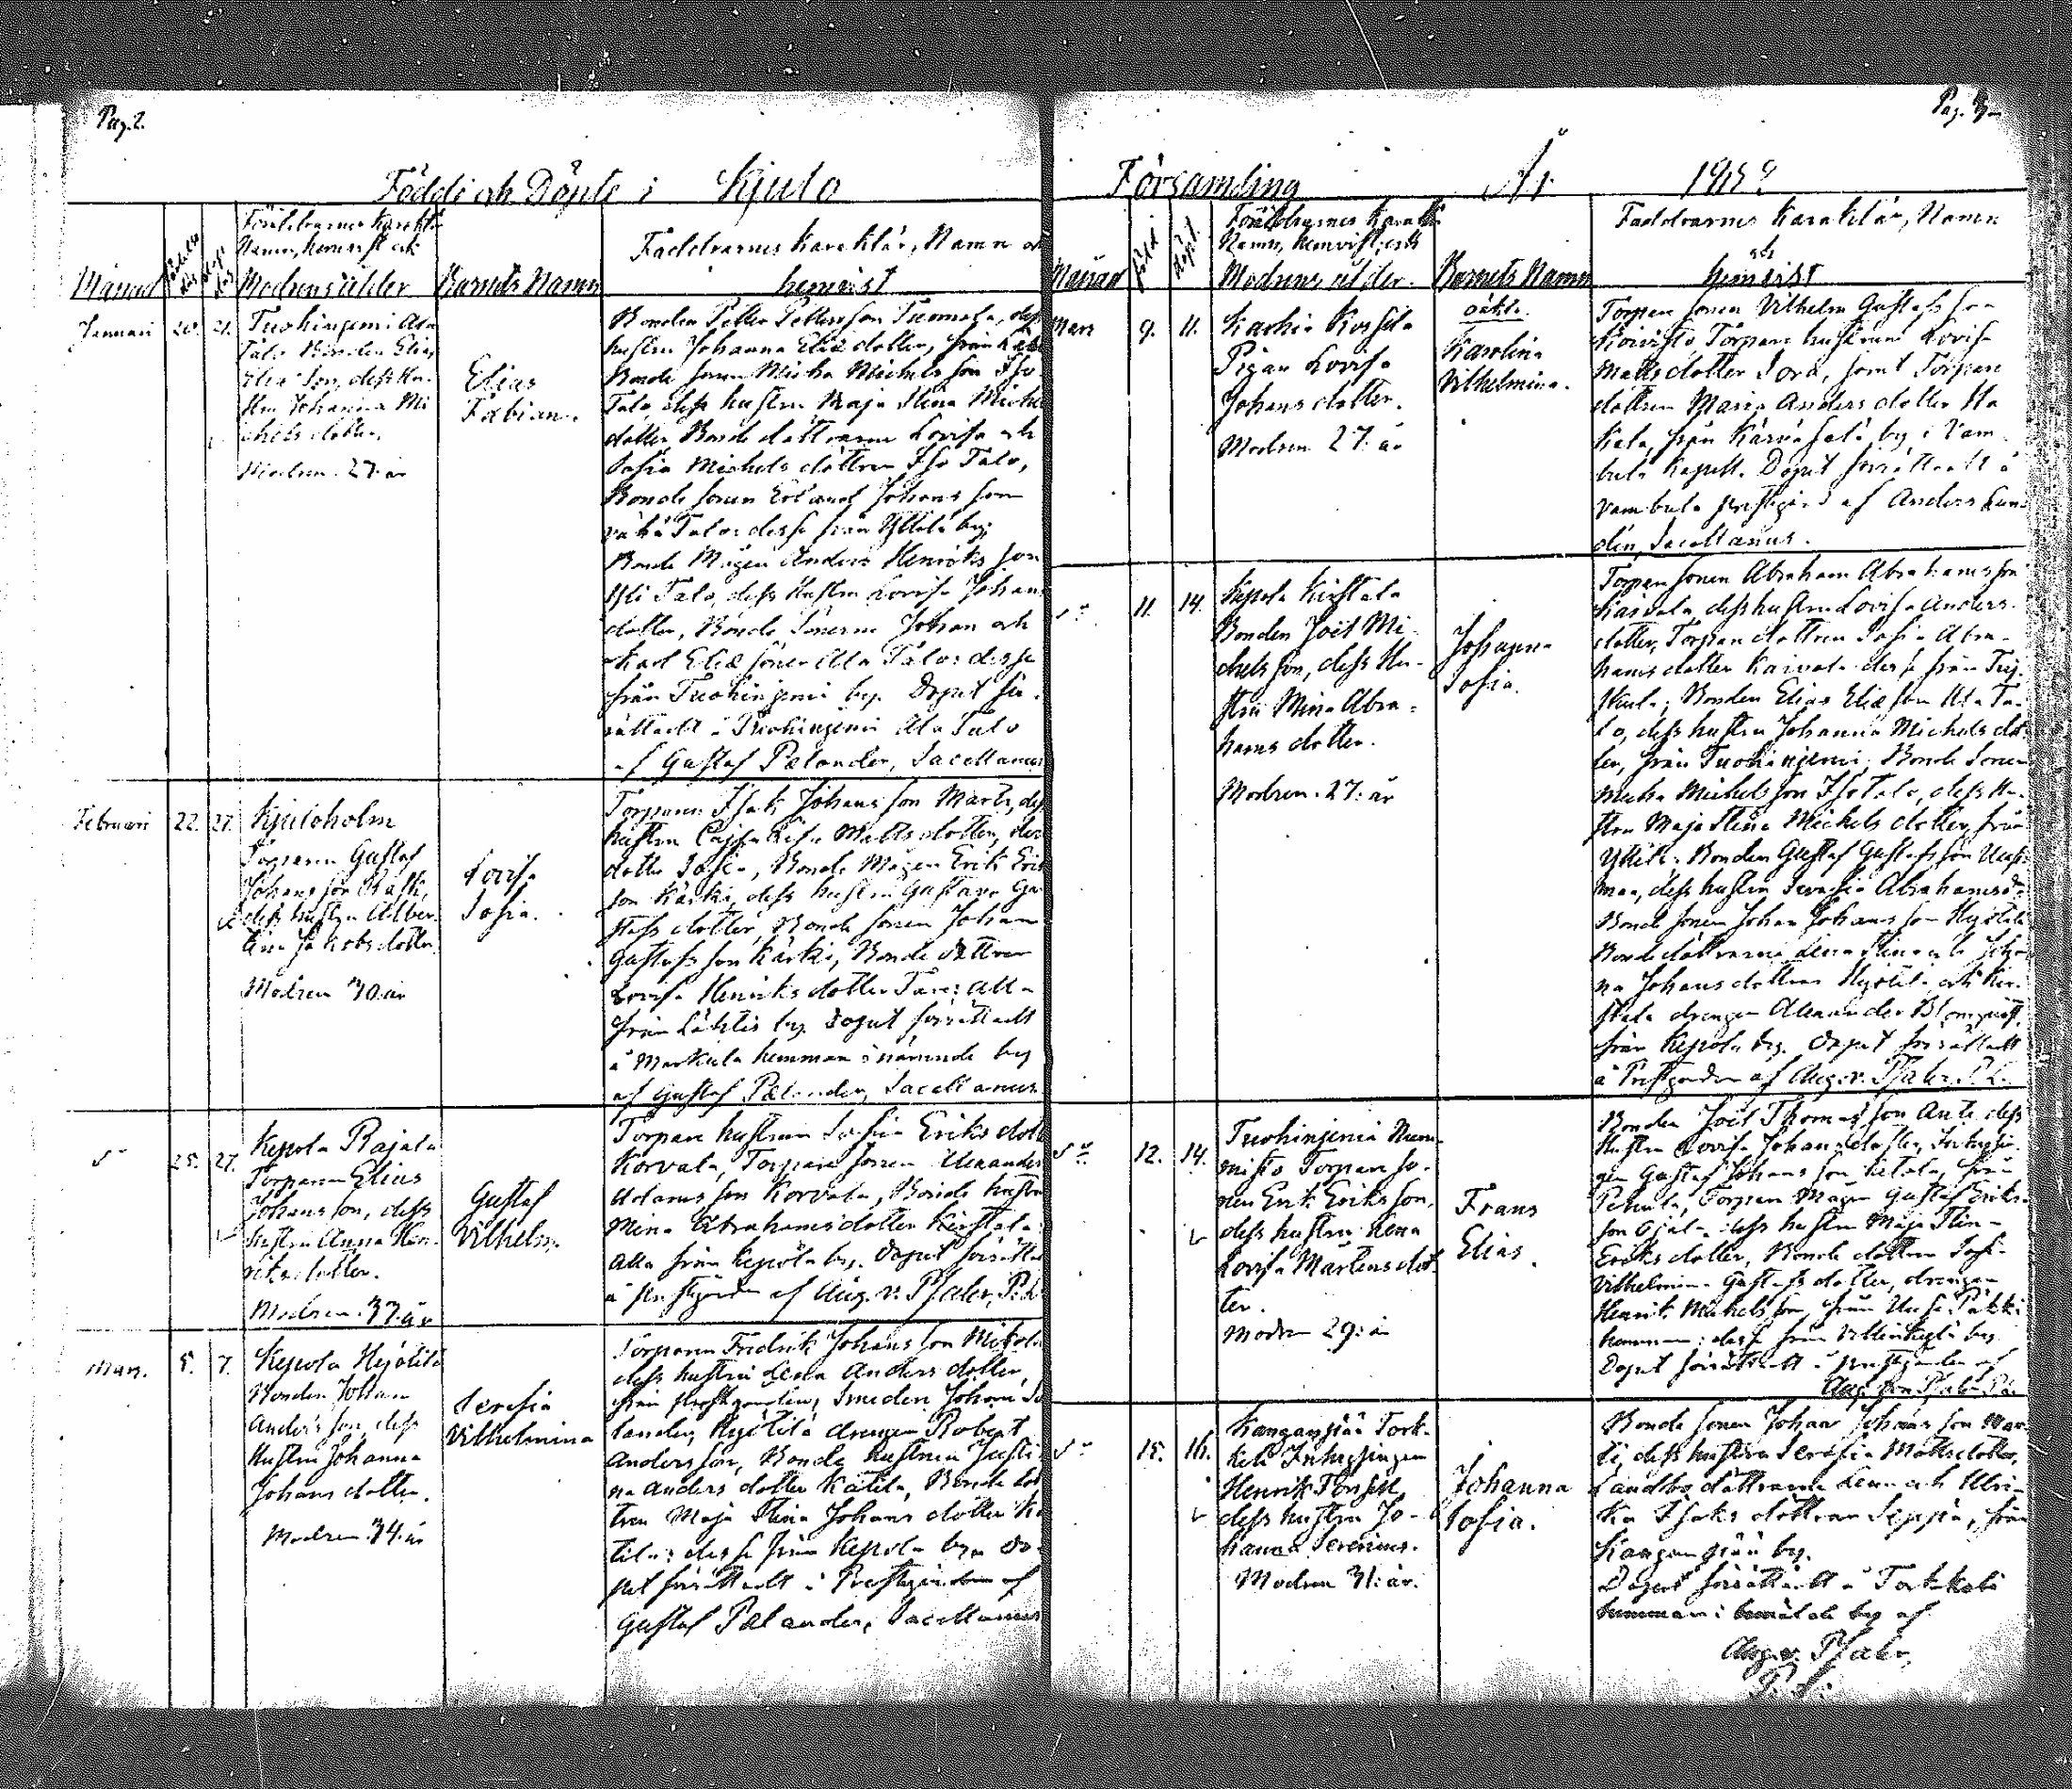 Pag. 2.
Födde och Döpte i Kjulo
Månad
Föräldrarnes Karaktär
Namn, hemvist och
Modrens ålder
Barnets Namn
Faddrarnes Karaktär, Namn och
hemvist
Januari 20. 21.
Tuohiniemi Ala
Talo Bonden Elias
Eliæ Son, dess Hu-
stru Johanna Mi
chels dotter.
Modren 27. år
Elias
Fabian.
Bonden Petter Petterson Tuomola, dess
hustru Johanna Eliæ dotter, från
Bonde sonen Micha Michels son Iso
Talo, dess hustru Maja Stina Michels
dotter Bonde döttrarne Lovisa och
Sofia Michels döttrar Iso Talo,
Bonde sonen Erland Johans son
Vähä Talo: desse från Yttilä by;
Bonde Mågen Anders Henriks son
Yli Talo, dess Hustru Lovisa Johans
dotter, Bonde Sönerne Johan och
Karl Eliæ söner Ala Talo: desse
från Tuohiniemi by. Dopet för-
rättadt å Tuohiniemi Ala Talo
af Gustaf Pælander, Sacellanus
Februari 22. 27.
Kjuloholm
Torparen Gustaf
Johans son
dess hustru Alber-
tina Jakobsdotter
Modren 30. år
Lovisa
Sofia.
Torparen Isak Johans son Marti, dess
hustru Cajsa Lisa Matts dotter, der
dotter Sofia, Bonde Mågen Erik Eriks
son Kärki, dess hustru Gustava Gu-
stafs dotter, Bonde sonen Johan
Gustafs son Kärki, Bonde dottren
Lovisa Henriks dotter : alla
från Lähtis by. Dopet förrättadt
å Markula hemman i nämnde by
af Gustaf Pælander, Sacellanus
25. 27.
Kepola Rajala
Torparen Elias
Johans son, dess
hustru Anna Hen-
riks dotter.
Modren 37. år
Gustaf
Vilhelm.
Torpare hustrun Sofia Eriks dotter
Korvala, Torpare sonen Alexander
Adams son Korvala, Bonde hustrun
Mina Abrahamsdotter Kirstala:
alla från Kepola by. Dopet förrättadt
å prestgården af Aug. v. Pfaler, P.L.
Mars. 5. 7.
Kepola Hyötilä
Bonden Johan
Anders son, dess
Hustru Johanna
Johans dotter.
Modren 34. år
Serefia
Vilhelmina
Torparen Fredrik Johans son Mikola
dess hustru Lena Anders dotter,
från prestgården, Smeden Johan Se-
lander, Hyötilä drängen Robert
Andersson, Bonde hustrun Justi-
na Anders dotter Katila, Bonde dot-
tren Maja Stina Johans dotter Ka-
tila: desse från Kepola by. Do-
pet förrättadt å Prestgården af
Gustaf Pælander, Sacellanus
Pag.
Församling År
Månad Född Döpt.
Föräldrarnes Karaktär
Namn, hemvist, och
Modrens ålder.
Barnets Namn
Faddrarnes Karaktär, Namn
och
hemvist
Mars 9. 11.
Pigan Lovisa
Johans dotter.
Modren 27. år
oäkta.
Karolina
Vilhelmina.
Torpare sonen Vilhelm Gustafs son
Koivisto Torpare hustrun Lovisa
Matts dotter Sora, samt Torpare
dottren Maria Anders dotter Ha
kala, från Kärnäsalo by i Vam-
bula Kapell. Dopet förrättadt å
Vambula prestgård af Anders Lun-
dén, Sacellanus.
11. 14.
Kepola Kirstala
Bonden Joël Mi-
chels son, dess Hu-
stru Mina Abra-
hams dotter.
Modren 27. år
Johanna
Sofia.
Torpare sonen Abraham Abrahams son
Kaivola, dess hustru Lovisa Anders
dotter, Torpare dottren Sofia Abra-
hams dotter Kaivola: desse från
Bonden Elias Eliæ son Ala Ta-
lo, dess hustru Johanna Michels dot-
ter, från Tuohiniemi; Bonde Sonen
Micha Michels son Iso Talo, dess Hu-
stru Maja Stina Michels dotter, från
Yttilä. Bonden Gustaf Gustafs son Uusi-
maa, dess hustru Abrahamsd.
Bonde sonen Johan Johans son Hyötilä
Bonde döttrarne Lena Stina och Johan-
na Johans döttrar Hyötilä och Kir-
stala drängen Alexander Blomqvist,
från Kepola by. Dopet förrättadt
å Prestgården af Aug. v. Pfaler. P.L.
12. 14.
Tuohiniemi Num-
misto Torpare so-
nen Erik Eriks son,
dess hustru Lena
Lovisa Mårtens dot-
ter.
Modren 29. år
Frans
Elias.
Bonden Joël Thomas son dess
Hustru Lovisa Johans dotter, Inhysin-
gen Gustaf Johans son från
Torpare Mågen Gustaf Eriks-
son Ojala dess hustru Maja Stina
Eriks dotter, Bonde dottren Sofia
Vilhelmina Gustafs dotter, drängen
Henrik Michels son, från Uusi
hemman: desse från by.
Dopet förrättadt å prestgården af
Aug. von Pfaler P.L.
15. 16.
Kanganpää Tork-
keli Inhysingen
Henrik Forssell,
dess hustru Jo-
hanna Serenius.
Modren 31. år.
Johanna
Sofia.
Bonde sonen Johan Johans son Mar-
ti, dess hustru Serafia Mattsdotter,
Landbo döttrarne Lena och Ulri-
ka Isaks döttrar Seppä, från
Kanganpää by.
Dopet förrättadt å Torkkeli
hemman i by af
Aug. v. Pfaler,
P. L.